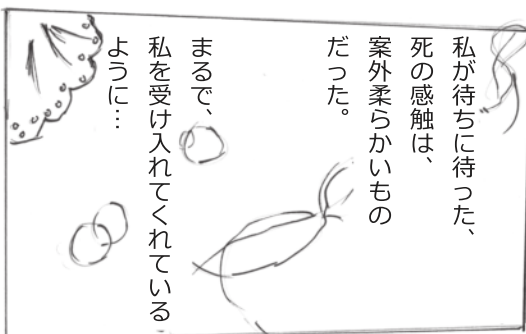 私が待ちに待った、
死の感触は、
案外柔らかいもの
だった。
まるで、
私を受け入れてくれている
ように…